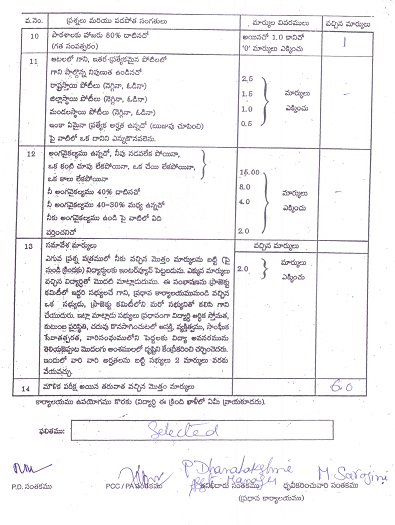 వ.నెం. ప్రశ్నలు మరియు పడపోత సంగతులు మార్కుల వివరములు వచ్చిన మార్కులు
10 పాఠశాలకు హాజరు 80% దాటినదో అయినచో 1.0 కానిచో 1
(గత సంవత్సరం) '0' మార్కులు ఎక్కించు
11 ఆటలలో గాని, ఇతర-ప్రత్యేకమైన పోటీలలో
గాని పాల్గొన్న నిపుణత ఉండినదో 2.5
రాష్ట్రస్థాయి పోటీలు (నెగ్గినా, ఓడినా) 1.5 మార్కులు
జిల్లాస్థాయి పోటీలు (నెగ్గినా, ఓడినా) 1.0 ఎక్కించు
మండలస్థాయి పోటీలు (నెగ్గినా, ఓడినా) 0.5
ఇంకా ఏమైనా ప్రత్యేక అర్హత ఉన్నదో (యుజువు చూపించి)
పై వాటిలో ఒక దానిని ఎన్నుకొనవలెను.
12 అంగవైకల్యము ఉన్నదో, నీవు నడవలేక పోయినా,
ఒక కంటి చూపు లేకపోయినా, ఒక చేయి లేకపోయినా, 15.00
ఒక కాలు లేకపోయినా 8.0 మార్కులు
నీ అంగవైకల్యము 40% దాటినచో 4.0 ఎక్కించు
నీ అంగవైకల్యము 40-30% మధ్య ఉన్నచో
నీకు అంగవైకల్యము ఉండి పై వాటిలో ఏది 2.0
వర్తించనిచో
13 సమావేశ మార్కులు వచ్చిన మార్కులు
ఎగువ ప్రశ్న పత్రములో నీకు వచ్చిన మొత్తం మార్కులను బట్టి (పై
నుండి క్రిందకు) విద్యార్థులకు ఇంటర్వ్యూన్ పెట్టబడును. ఎక్కువ మార్కులు 2.0 మార్కులు
వచ్చిన విద్యార్థితో మొదట మాట్లాడుదుము. ఈ సంభాషణను ప్రాజెక్టు ఎక్కించు
కమిటీలో ఇద్దరి సభ్యుంచే గాని, ప్రధాన కార్యాలయమునుండి వచ్చిన
ఒక సభ్యుడు, ప్రాజెక్టు కమిటీలోని మరో సభ్యునితో కలిసి గాని
చేయుదురు. ఇట్లా మాట్లాడు సభ్యులు ప్రధానంగా విద్యార్థి ఆర్థిక స్తోమత,
కుటుంబ పరిస్థితి, చదువు కొనసాగించుటలో ఆసక్తి, వ్యక్తిత్వము, సాంఘీక
సేవాతత్పరత, వారిసంఘములోని పెద్దలకు విద్యా అవసరమును
తెలియజెప్పుట మొదలగు అంశములలో దృష్టిని కేంద్రీకరించి చర్చించెదరు.
ఇందులో వారి వారి అర్హతలను బట్టి సభ్యులు 2 మార్కులు వరకు
వేయవచ్చు.
14 మౌళిక పరీక్ష అయిన తరువాత వచ్చిన మొత్తం మార్కులు 60
కార్యాలయము ఉపయోగము కొరకు (విద్యార్థి ఈ క్రింది ఖాళీలో ఏమీ వ్రాయకూడదు).
ఫలితము: Selected
P Dhanalakshmi M Sarojini
P.D. సంతకము PCC / PA సంతకము తనిఖీదారు సంతకము ధృవీకరించువారి సంతకము
(ప్రధాన కార్యాలయము)